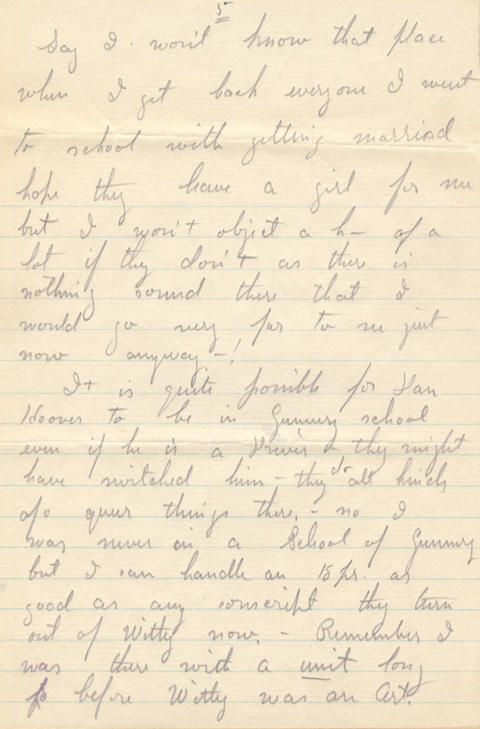 5
Say I. won't know that place
when I get back everyone I went
to school with getting married
hope they leave a girl for me
but I won't object a h— of a
lot if they don't as there is
nothing round there that I
would go very far to see just
now anyway —!
It is quite possible for
Hoover to be in Gunnery school
even if he is a driver they might
have switched him — they do all kinds
of queer things there. — no I
was never in a School of Gunnery
but I can handle an 18 pr. as
good as any conscript they turn
out of Witty now. — Remember I
was there with a unit long
before Witty was an Art.